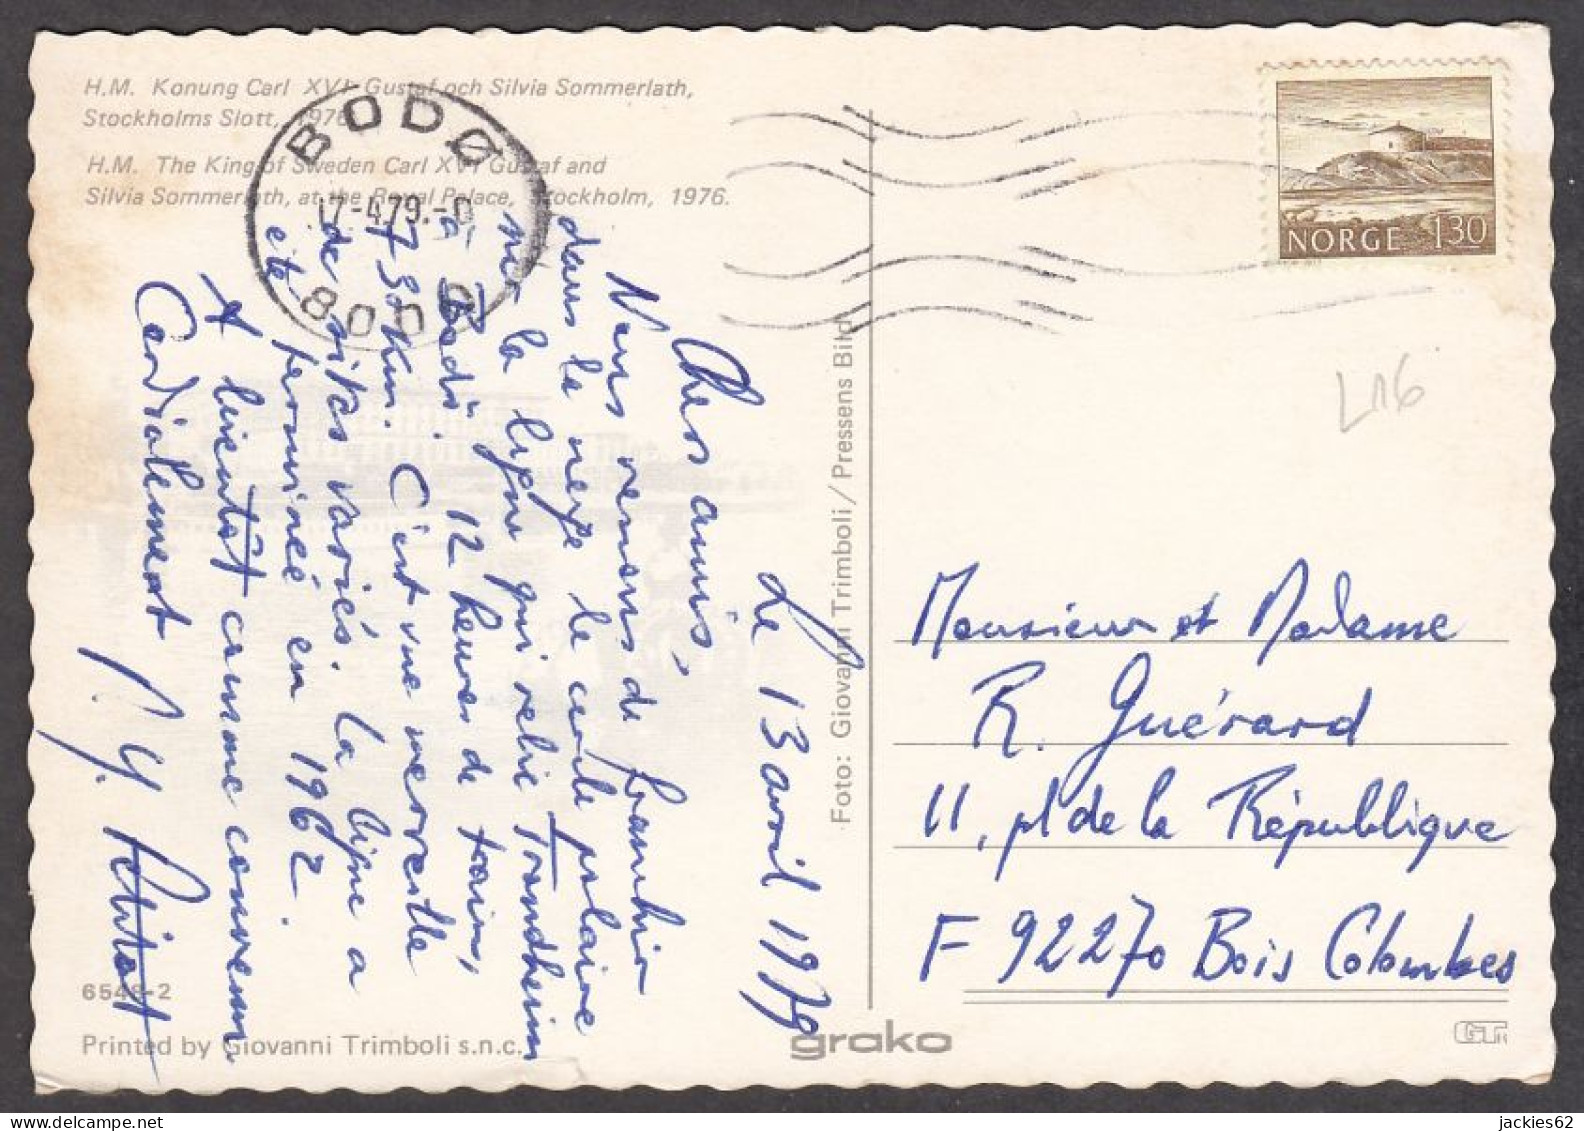 H.M. Konung Carl XVI Gustaf och Silvia Sommerlath,
Stockholms Slott, 1976.
H.M. The King of Sweden Carl XVI Gustaf and
Silvia Sommerlath, at the Royal Palace, Stockholm, 1976.
BODØ
17-4.79.-
8000
NORGE 130
L16
Le 13 avril 1979
Chers amis,
Nous venons de franchir
dans la neige le cercle polaire
sur la ligne qui relie Trondheim
à Bodö. 12 heures de train,
730 km. C'est une merveille
de sites variés. La ligne a
été terminée en 1962.
A bientôt comme convenu
Cordialement
Monsieur et Madame
R. Guérard
11, pl de la République
F 92270 Bois Colombes
Foto: Giovanni Trimboli / Pressens Bild
6548-2
Printed by Giovanni Trimboli s.n.c.
grako
GT
jackies62